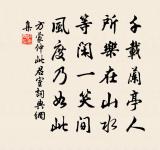 千載蘭亭人
所樂在山水
等閑一笑間
風度乃如此
方蒙仲此君室詞典網
集